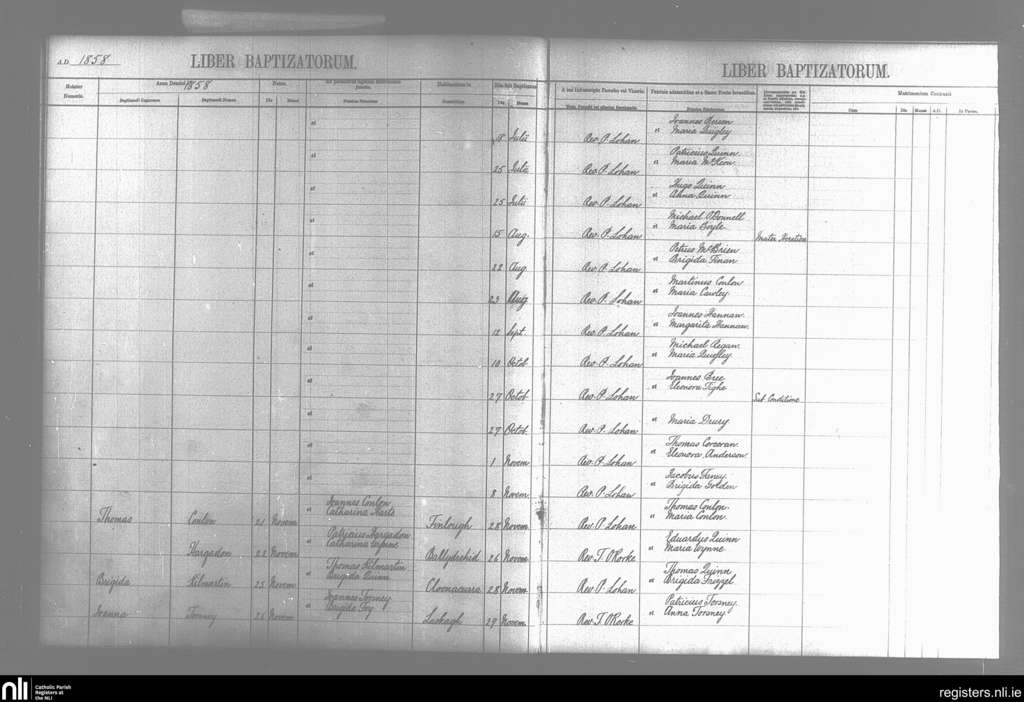 A.D. 1858
LIBER BAPTIZATORUM.
LIBER BAPTIZATORUM.
Anno Domini 1858
Matrimonium Contraxit
et 18 Julii Rev. P. Lohan et Joannes Brien Maria Quigley
et 25 Julii Rev. P. Lohan et Patricius Quinn Maria McKeon
et 25 Julii Rev. P. Lohan et Hugo Quinn Anna Quinn
et 15 Aug. Rev. P. Lohan et Michael O'Donnell Maria Boyle
et 22 Aug Rev. P. Lohan et Petrus McBrien Brigida Finan
et 23 Aug Rev. P. Lohan et Martinus Conlon Maria Cawley
et 12 Sept. Rev. P. Lohan et Joannes Hannan Margarita Hannan
et 10 Octob Rev. P. Lohan et Michael Regan Maria Quigley
et 27 Octob Rev. P. Lohan et Joannes Bree Eleonora Tighe Sub Conditione
et 27 Octob. Rev. P. Lohan et Maria Drury
et 1 Novem Rev. P. Lohan et Thomas Corcoran Eleonora Anderson
et 8 Novem Rev. P. Lohan et Jacobus Feeney Brigida Golden
Thomas Conlon 21 Novem Joannes Conlon et Catharina Harte Finlough 28 Novem Rev. P. Lohan et Thomas Conlon Maria Conlon
Hargadon 22 Novem Patricius Hargadon et Catharina Ballydrehid 26 Novem Rev. T. O'Rorke et Eduardus Quinn Maria Wynne
Brigida Kilmartin 25 Novem Thomas Kilmartin et Brigida Quinn Cloonacurra 28 Novem Rev. P. Lohan et Thomas Quinn Brigida Frizzel
Joanna Toorney 26 Novem Joannes Toorney et Brigida Foy Luohagh 29 Novem Rev. T. O'Rorke et Patricius Toorney Anna Toorney
nli Catholic Parish
Registers at
the NLI
registers.nli.ie